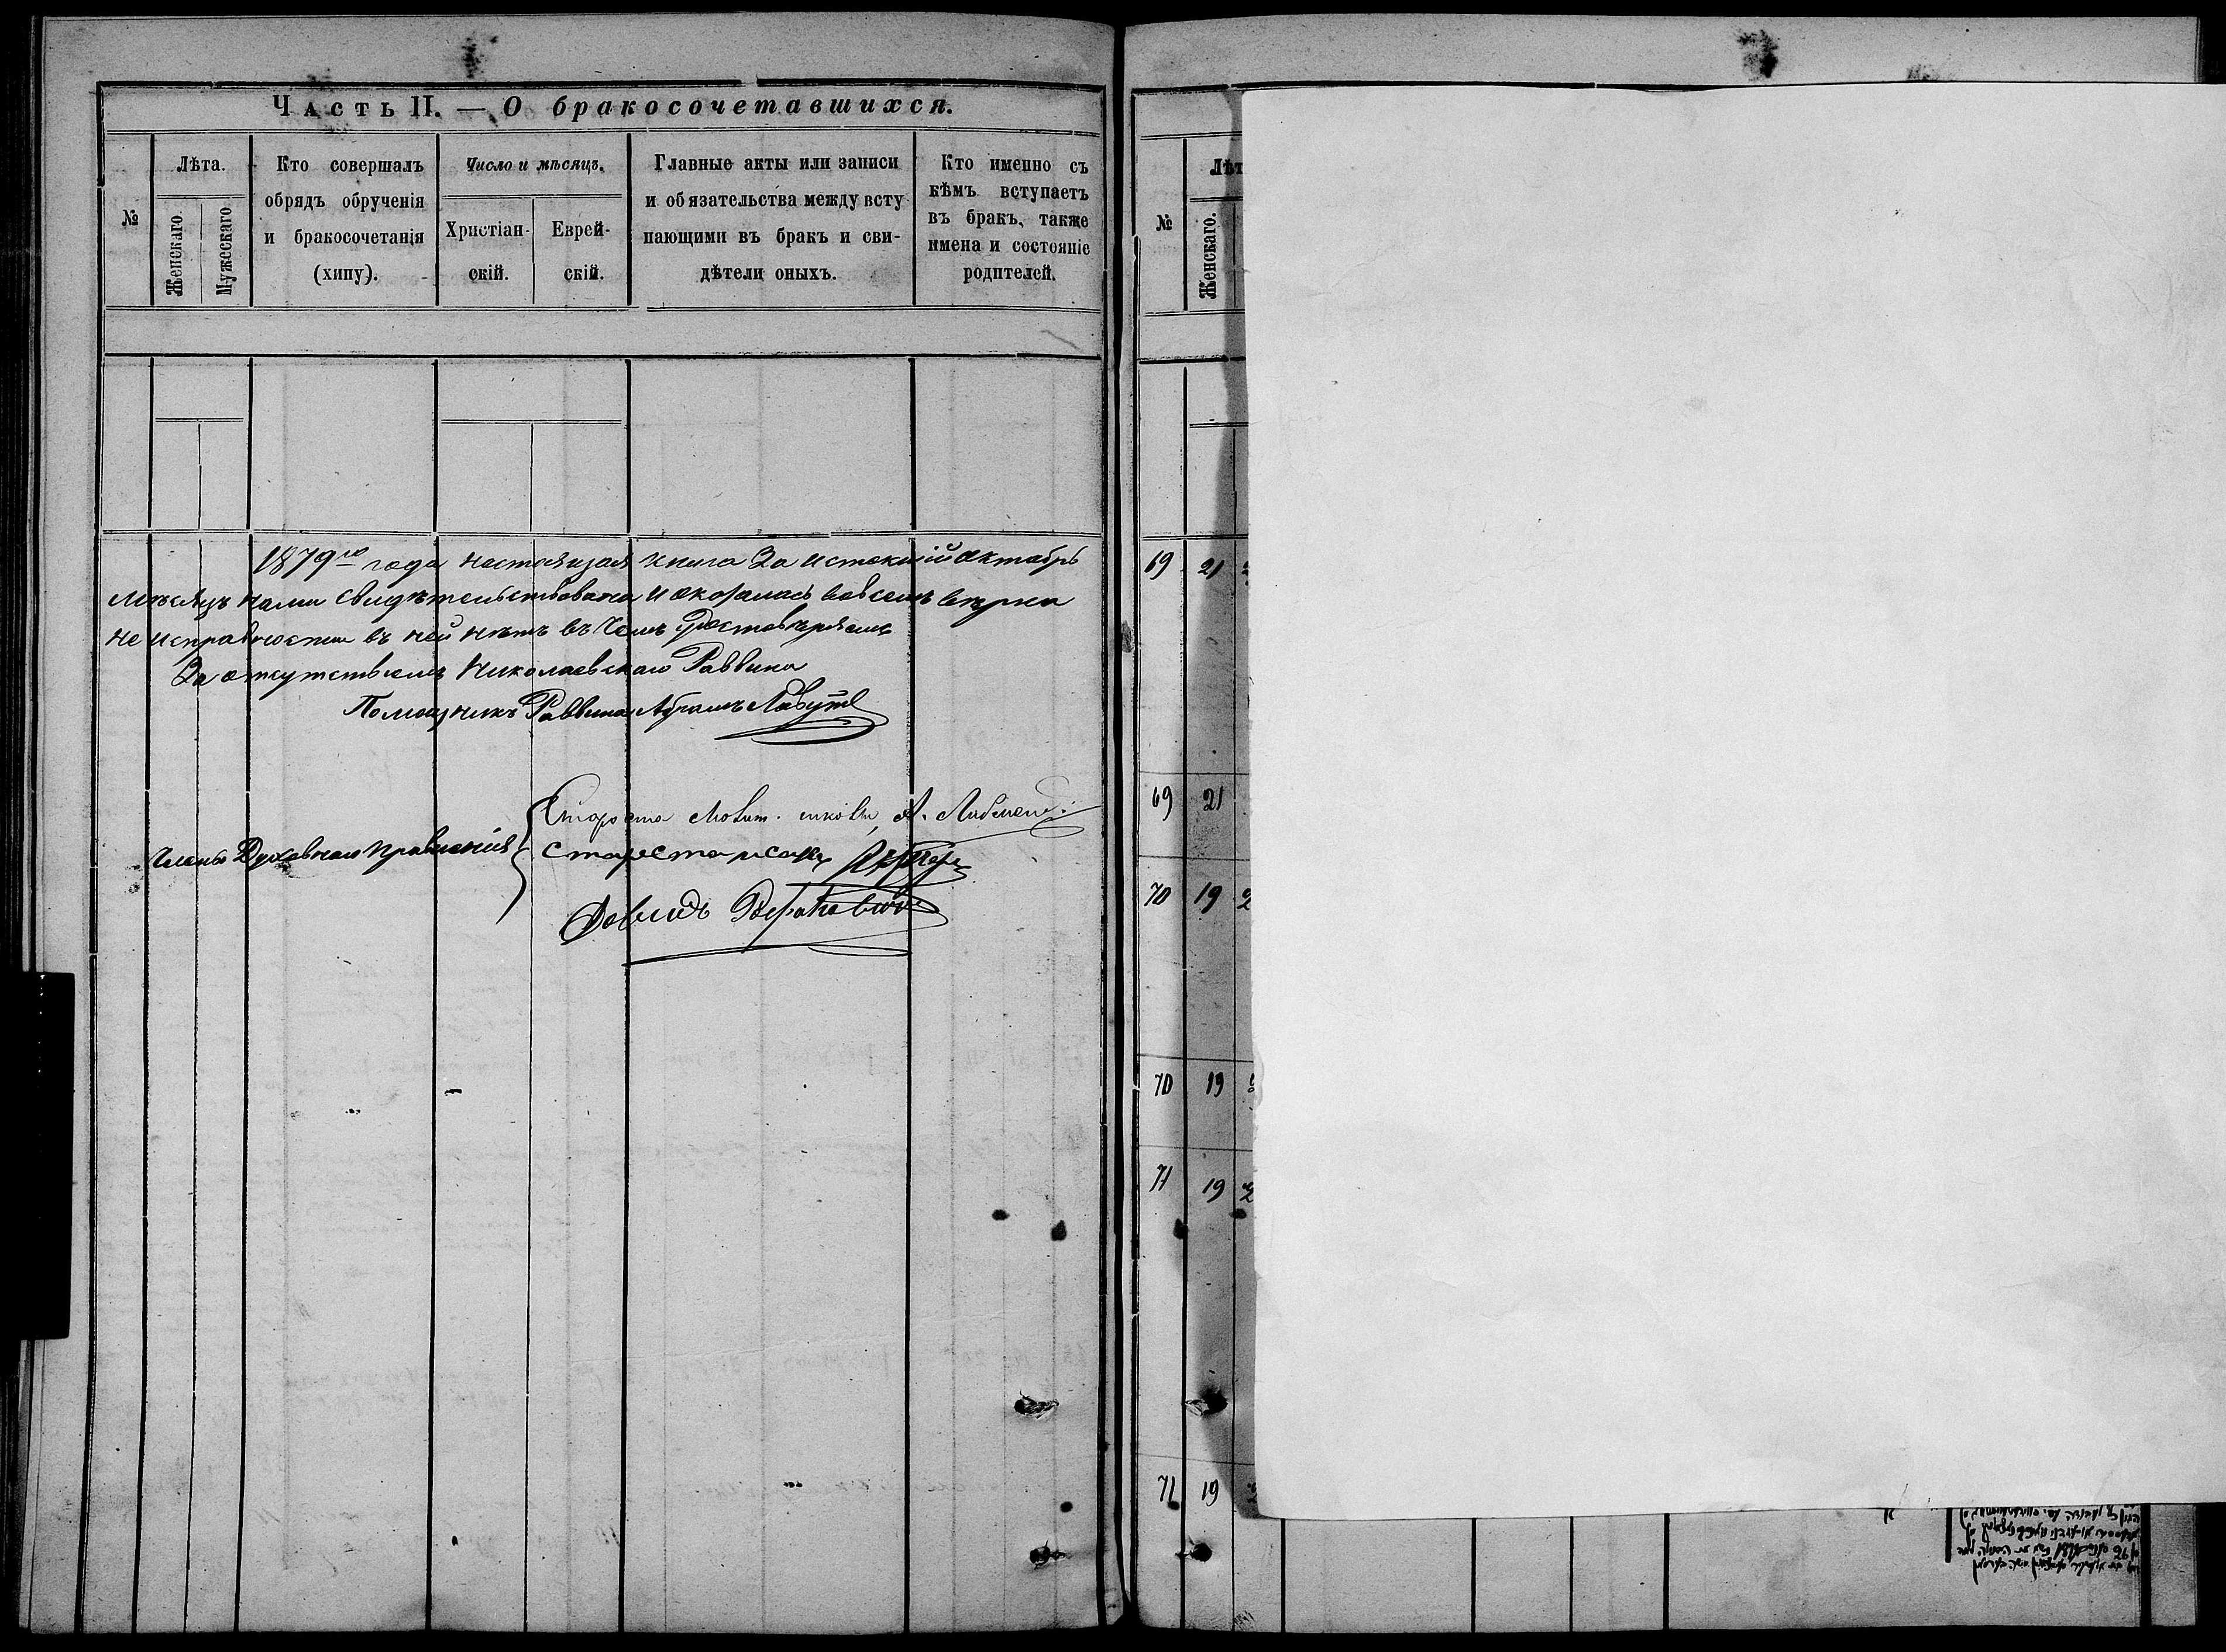 Часть II. — О бракосочетавшихся.
№
Лѣта.
Женскаго.
Мужескаго
Кто совершалъ
обрядъ обрученія
и бракосочетанія
(хипу).
Число и мѣсяцъ.
Христіан-
скій.
Еврей-
скій.
Главные акты или записи
и обязательства между всту
пающими въ бракъ и сви-
дѣтели оныхъ.
Кто именно съ
кѣмъ вступаетъ
въ бракъ, также
имена и состояніе
родителей.
1879го года настоящая книга за истекшій октябрь
мѣсяцъ нами свидѣтельствована и оказалась вовсемъ вѣрна
не исправности въ ней нѣтъ въ чемъ удостовѣряемъ
За отсутствіемъ Николаевскаго Раввина
Помощникъ Раввина Абрамъ Лавутъ
Члены Духовнаго Правленія
Староста Молит. школы А.
Староста
Довидъ
№
Лѣт
Женскаго.
69 21
69 21
70 19 2
70 19
71 19 2
71 19